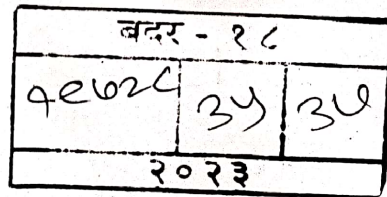 बदर - १८
१९७२८ ३५ ३७
२०२३